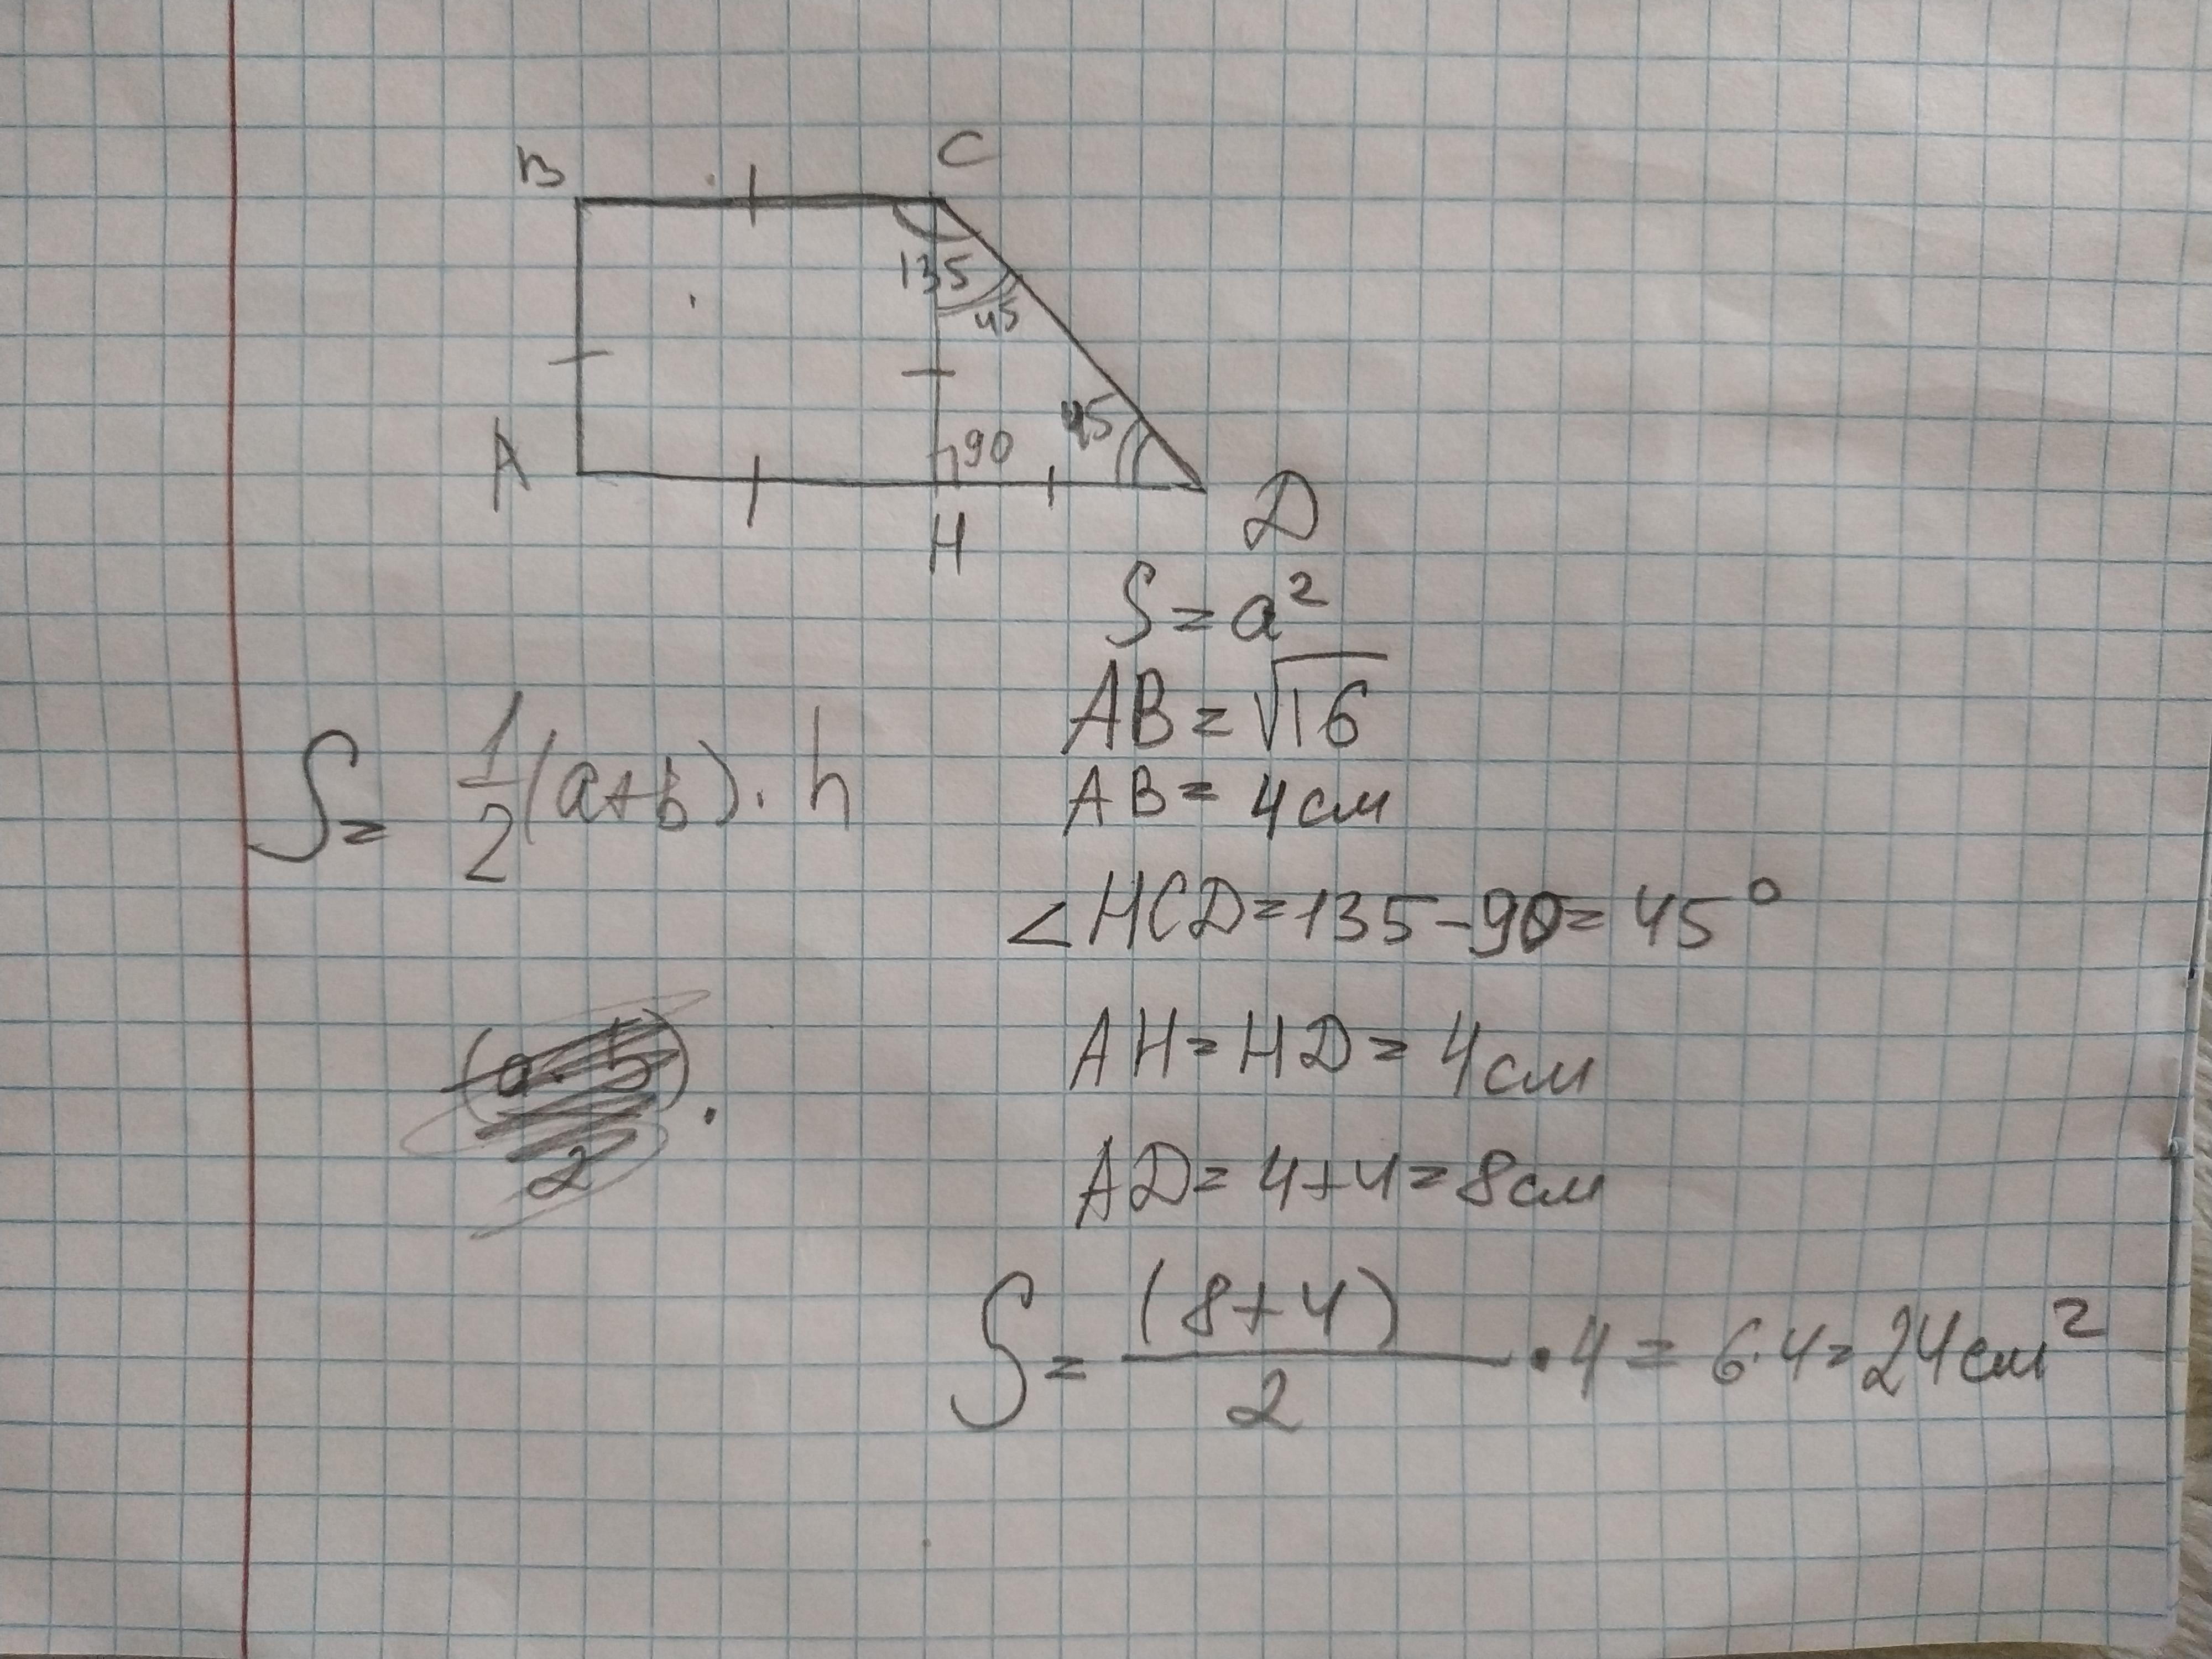 B C
135
45
45
90
A
H
D
S = a²
AB = √16
S = 1/2 (a+b) · h
AB = 4 см
∠HCD = 135 - 90 = 45°
AH = HD = 4 см
2
AD = 4+4 = 8 см
S = (8+4)/2 · 4 = 6·4 = 24 см²